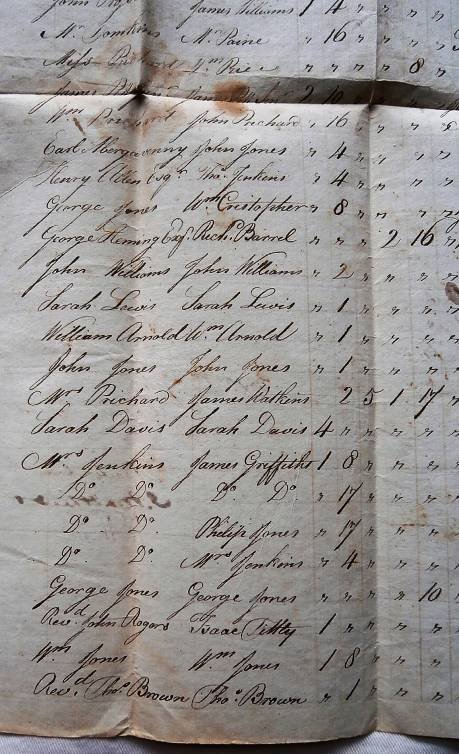 James Williams 1 4 " " "
Mr. Tomkins Mr. Paine " 16 " " " "
Miss Prichard Wm. Price " " " " 8 "
James
Wm. Prichard John Prichard " 16 " " " "
Earl Abergavenny John Jones " 4 " " " "
Henry Allen Esqr. Thos. Jenkins " 4 " " " "
George Jones Wm. Cristopher " 8 " " " "
George Heming Esqr. Richd. Barrel " " " 2 16 "
John Williams John Williams " 2 " " " "
Sarah Lewis Sarah Lewis " 1 " " " "
William Arnold Wm. Arnold " 1 " " " "
John Jones John Jones " 1 " " " "
Mrs. Prichard James Watkins 2 5 1 17 "
Sarah Davis Sarah Davis 4 " " " " "
Mrs. Jenkins James Griffiths 1 8 " " " "
Do. Do. Do. Do. " 17 " " " "
Do. Do. Philip Jones " 17 " " " "
Do. Do. Mrs. Jenkins " 4 " " " "
George Jones George Jones " " " " 10 "
Revd. John Rogers Isaac 1 " " " " "
Wm. Jones Wm. Jones 1 8 " " " "
Revd. Thos. Brown Thos. Brown " 1 " " " "